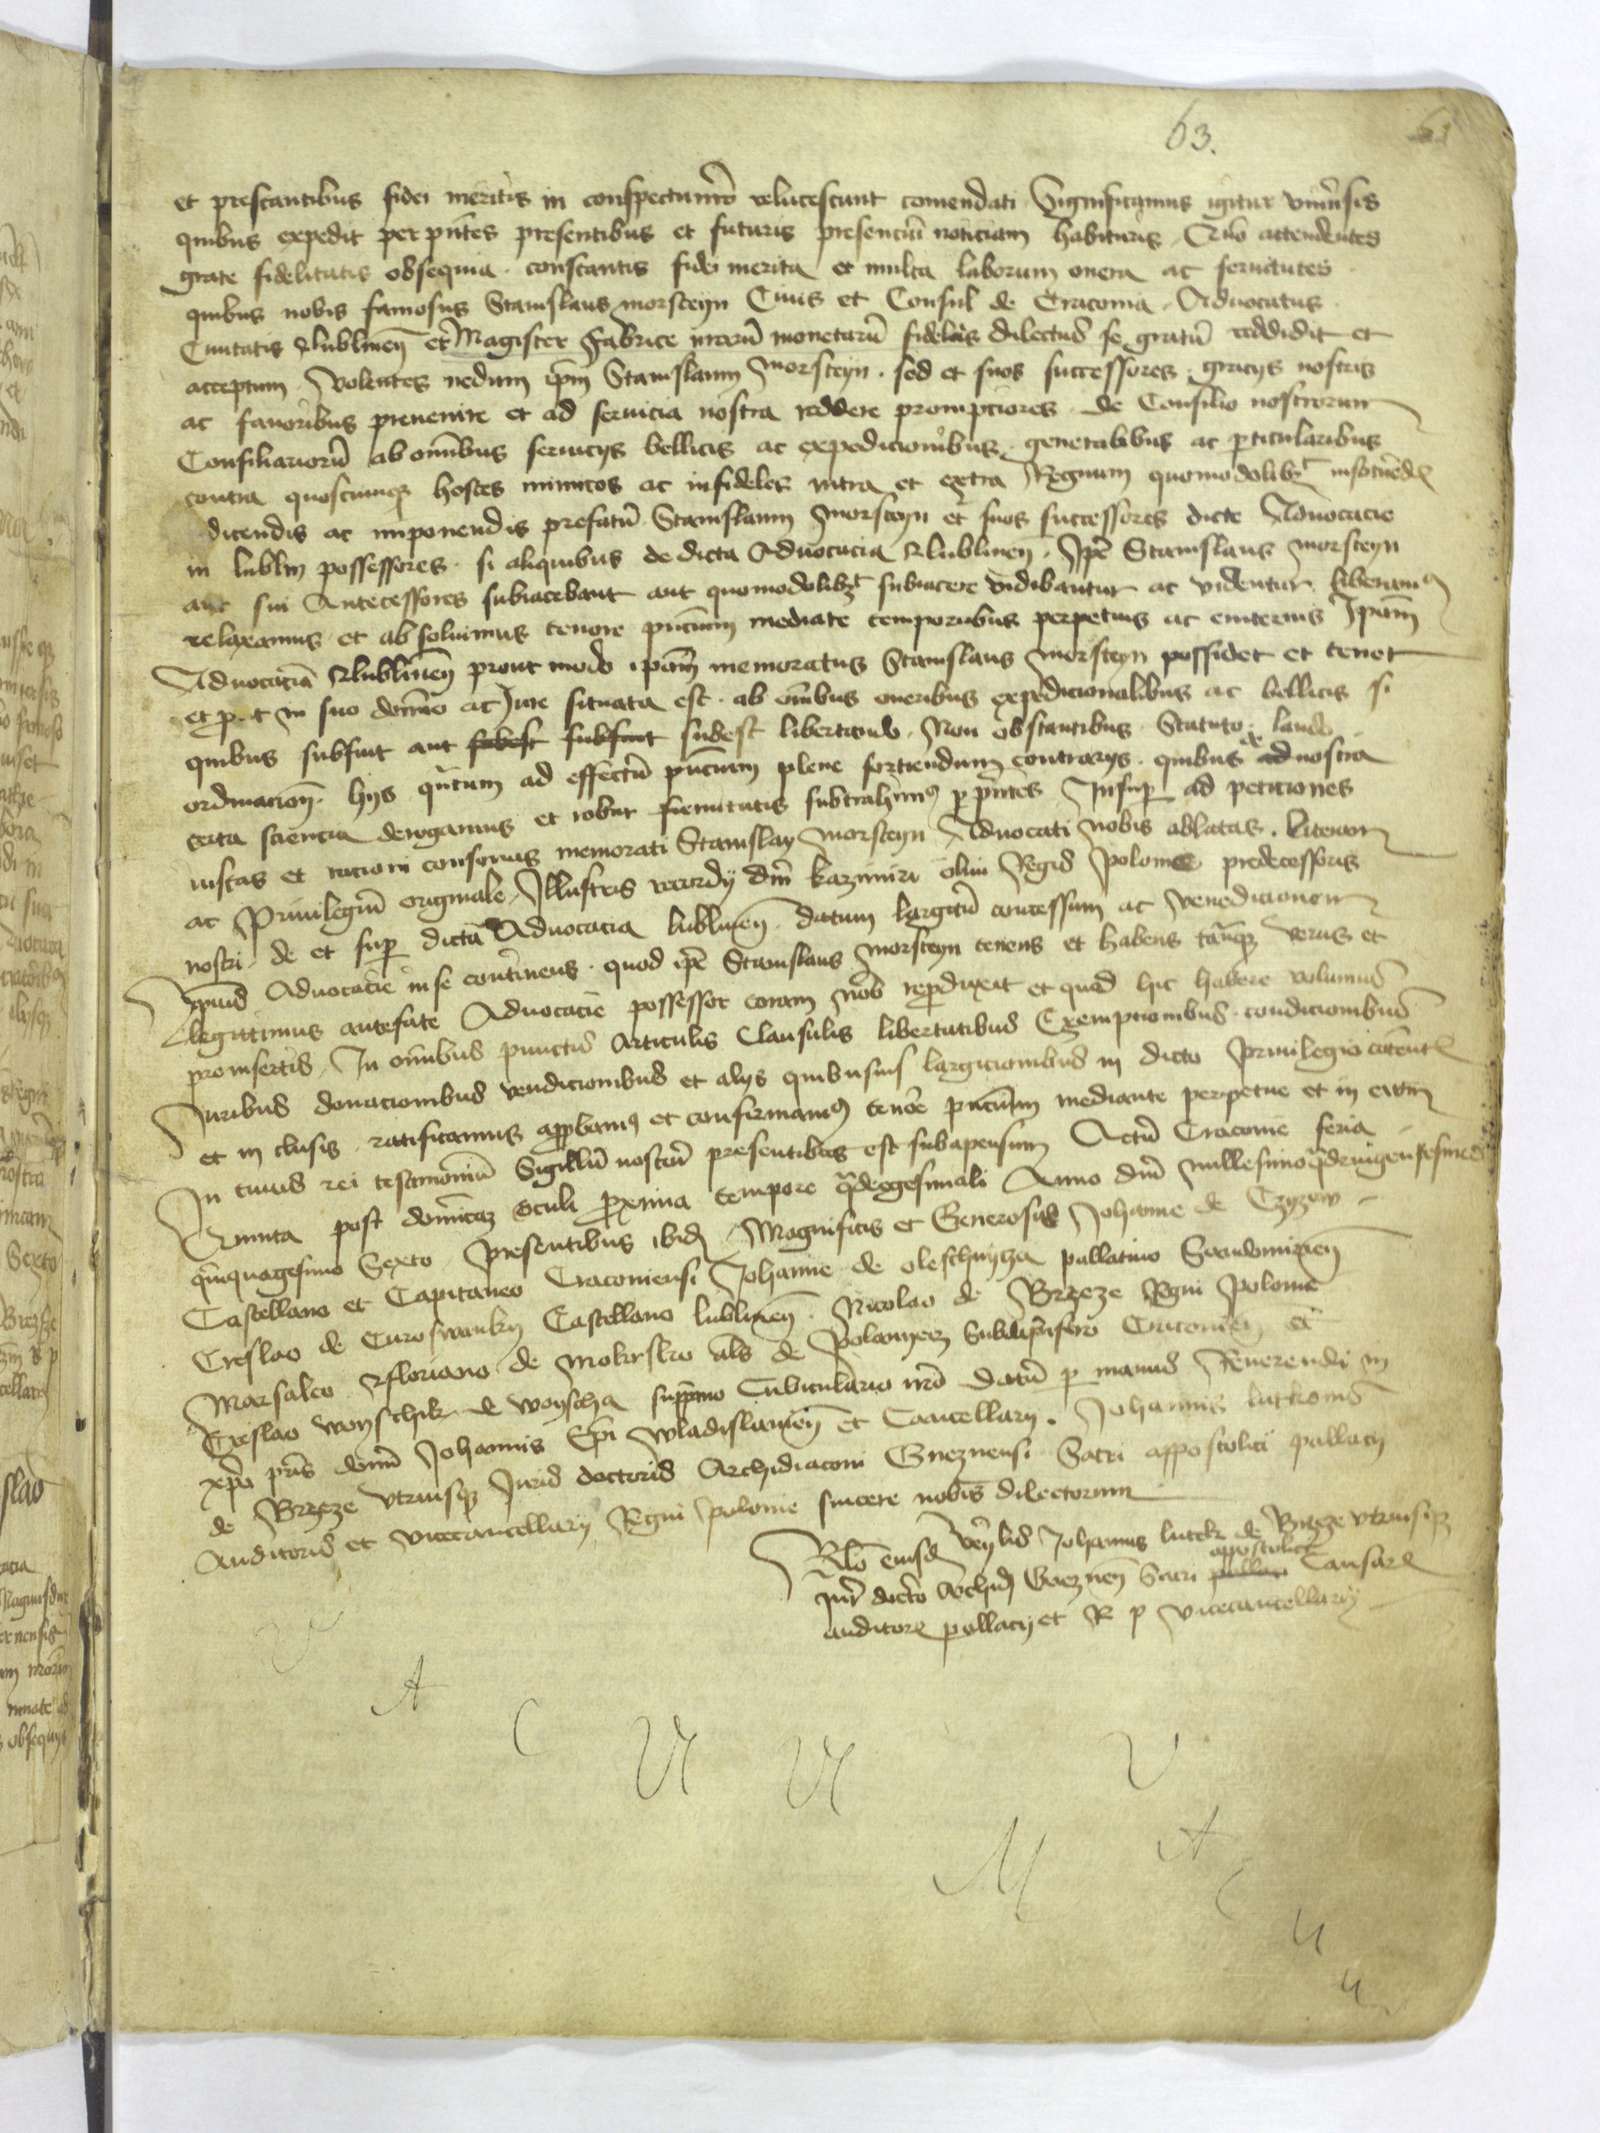 63.
et prestantibus fidei meritis in conspectu nro relucescunt comendati Significamus igitur vniuersis
quibus expedit per pntes presentibus et futuris presenciu noticiam habituris Quo attendentes
grate fidelitatis obsequia constantis fidei merita et multa laborum onera ac seruitutes
quibus nobis famosus Stanislaus morsteyn Ciuis et Consul de Cracouia Aduocatus
Ciuitatis Lublinen et Magister Fabrice nraru monetaru fidelis dilectus se gratu reddidit et
acceptum Volentes nedum ipm Stanislaum Morsteyn sed et suos successores gracys nostris
ac fauoribus preuenire et ad seruicia nostra reddere prompciores de Consilio nostrorum
Consiliarioru ab omibus seruicys bellicis ac expedicionibus generalibus ac particularibus
contra quoscumqz hostes inimicos ac infideles intra et extra Regnum quomodolibet
dicendis ac imponendis prefatu Stanislaum Morsteyn et suos successores dicte Aduocacie
in lublin possessores si aliquibus de dicta Aduocacia Lublinen Ipe Stanislaus Morsteyn
aut sui Antecessores subiacebant aut quomodolibet subiacere vidibantur ac videntur liberamus
relaxamus et absoluimus tenore pncium mediate temporibus perpetuis ac euiternis Ipam
Aduocacia Lublinen prout modo ipam memoratus Stanislaus Morsteyn possidet et tenet
et put in suo dominio ac Iure situata est ab omibus oneribus expedicionalibus ac bellicis si
quibus subfuit aut subest subfuit subest libertando Non obstantibus Statuto laudo
ordinacion hys qntum ad effectu pncium plene sorciendum contrarys quibus ex ad nostra
certa sciencia derogamus et robur firmitatis subtrahimus p pntes Insup ad peticiones
iustas et racioni consonas memorati Stanislay Morsteyn Aduocati nobis oblatas literam
ac Priuilegiu originale Illustris recordy dni Kazimiri olim Regis Polonie predecessoris
nostri de et sup dicta Aduocacia lublinen datum largitu concessum ac vendicionem
ipius Aduocacie in se continens quod ipe Stanislaus Morsteyn tenens et habens tanqz verus et
legittimus antefate Aduocacie possessor coram nob reproduxit et quod hic habere volumus
pro insertis In omibus punctis Articulis Clausulis libertatibus Exempcionibus condicionibus
Iuribus donacionibus vendicionibus et alys quibusuis largicionibus in dicto Priuilegio contentis
et in clusis ratificamus approbamus et confirmamus tenore pncium mediante perpetue et in euum
In cuius rei testimoniu Sigillu nostru presentibus est subapensum Actu Cracouie feria
Quinta post dominicaz Oculi proxima tempore qdragesimali Anno dni millesimo qdringentesimo
quinquagesimo Sexto Presentibus ibid Magnificis et Generosis Johanne de Czyzow
Castellano et Capitaneo Cracouiensi Johanne de oleschnycza pallatino Sandomirien
Creslao de Curoswanky Castellano lublinen Nicolao de Brzeze Regni Polonie
Marsalco Floriano de Mokrsko als de Polanyecz Subdapifero Cracouien et
Creslao woyschik de woyscha suppmo Cubiculario nro Datu p manus Reuerendi in
xpo pris domi Johannis Epi Wladislauien et Cancellary Johannis lutkonis
de Brzeze vtriusqz Iuris doctoris Archidiaconi Gneznensi Sacri appostolici pallacy
Auditoris et vicecancellary Regni Polonie sincere nobis dilectorum
Rlo eiusd Johannis lutek de Brzeze vtriusqz
Iur docto Archid Gneznen Sacri pallac appostolici Causar
auditore pallacy et R p vicecancellary
V A C U U M
V A C U U M